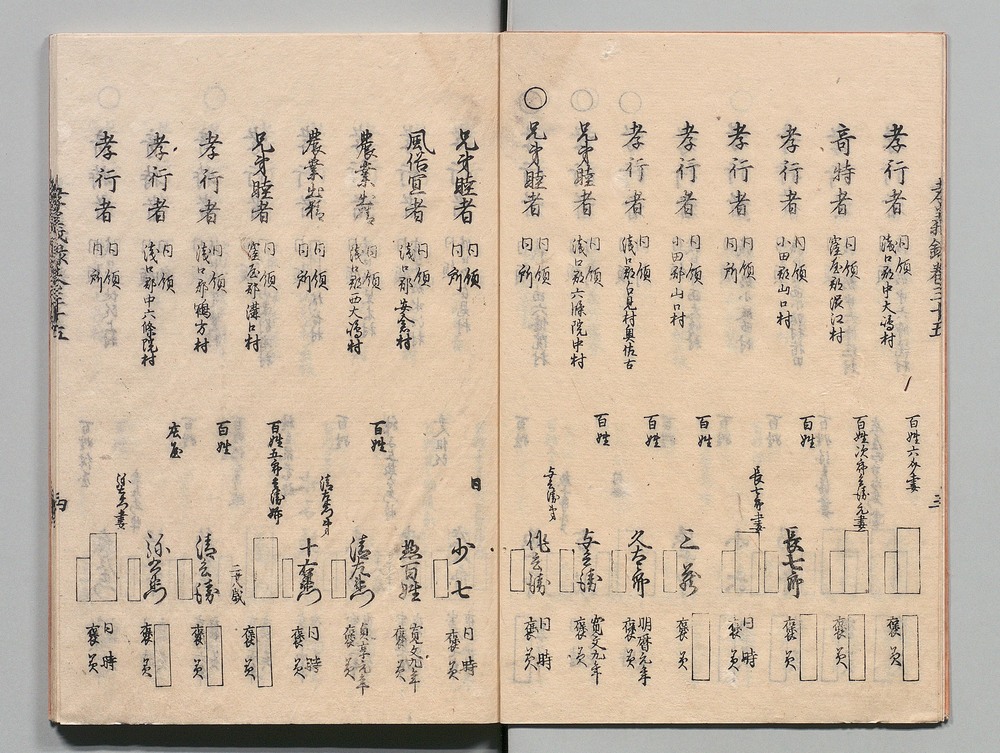 孝義録卷三十五
孝行者 同領 浅口郡中大嶋村 百姓六介妻 褒美
奇特者 同領 窪屋郡濱江村 百姓次郎兵衛元妻 褒美
孝行者 同領 小田郡山口村 百姓 長七郎 褒美
孝行者 同領 同所 長七郎妻 同時 褒美
孝行者 同領 小田郡山口村 百姓 三蔵 褒美
孝行者 同領 浅口郡占見村奥佐古 百姓 久太郎 明暦元年 褒美
兄弟睦者 同領 浅口郡六條院中村 百姓 与兵衛 寛文九年 褒美
兄弟睦者 同領 同所 与兵衛弟 兵衛 同時 褒美
兄弟睦者 同領 同所 同 少七 同時 褒美
風俗宜者 同領 浅口郡安倉村 惣百姓 寛文九年 褒美
農業出精 同領 浅口郡西大嶋村 百姓 清左衛門 貞享元年 褒美
農業出精 同領 同所 清左衛門弟 十右衛門 同時 褒美
兄弟睦者 同領 窪屋郡溝口村 百姓五郎兵衛姉 褒美
孝行者 同領 浅口郡鴨方村 百姓 清兵衛 二十八歳 褒美
孝行者 同領 浅口郡中六條院村 庄屋 弥右衛門 褒美
孝行者 同領 同所 妻 同時 褒美